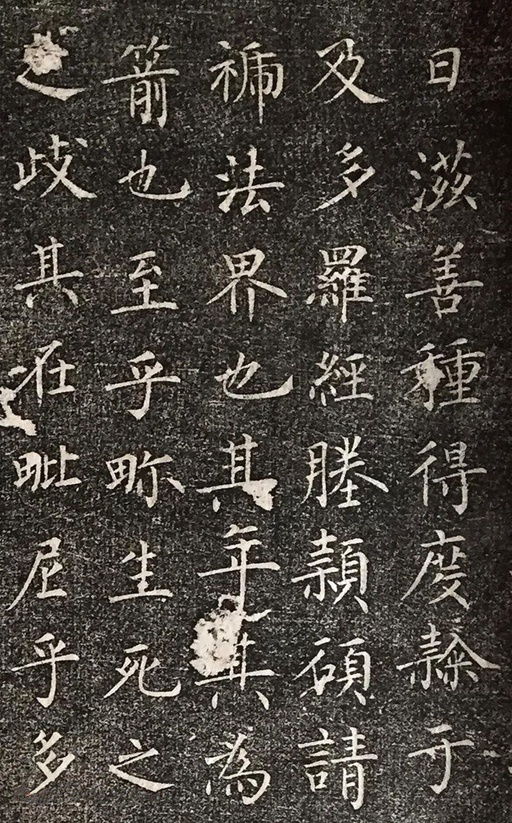 日滋善種得度隸于
及多羅經塍頴碩請
褊法界也其年其為
箭也至乎畛生死之
歧其在毗尼乎多